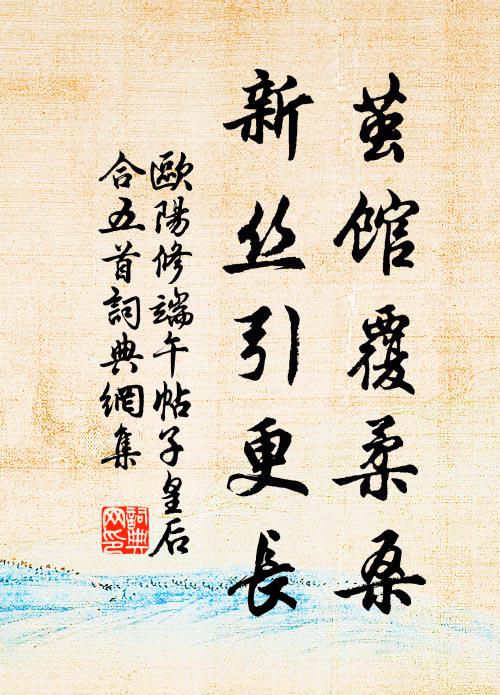 茧馆覆柔桑
新丝引更長
歐陽修端午帖子皇后
合五首詞典網集
詞典
网印